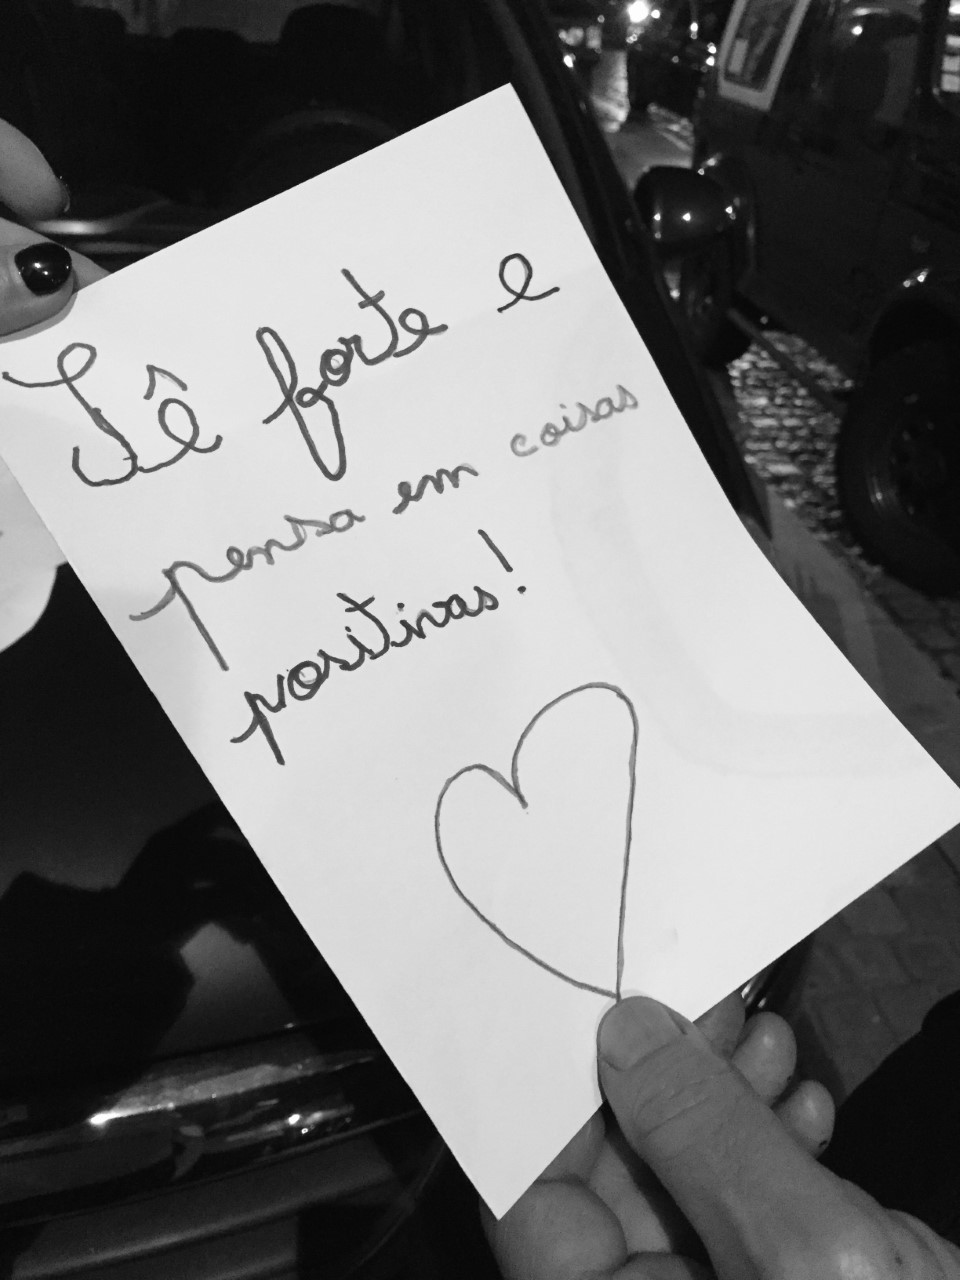 Sê forte e
pensa em coisas
positivas!